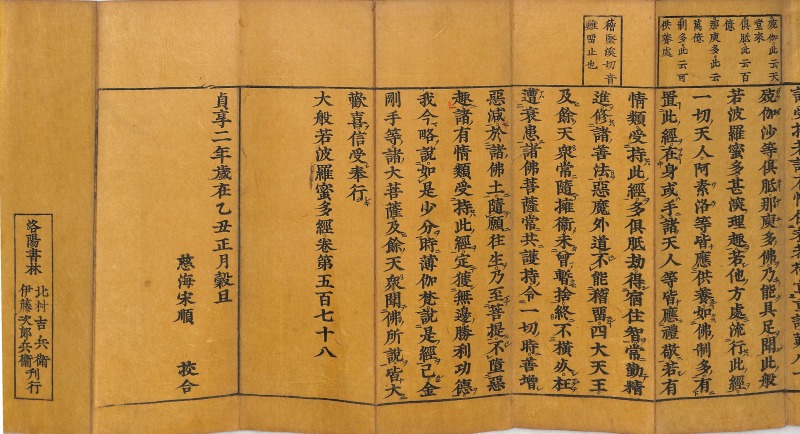 殑伽此云天
堂來
俱胝此云百
億
那庾多此云
萬億
制多此云可
供養處
殑伽沙等俱胝那庾多佛乃能具足聞此般
若波羅蜜多甚深理趣若他方處流行此經
一切天人阿素洛等皆應供養如佛制多有
置此經在身或手諸天人等皆應禮敬若有
稽堅溪切音
雞留止也
情類受持此經多俱胝劫得宿住智常勤精
進修諸善法惡魔外道不能稽留四大天王
及餘天衆常隨擁衛未曾暫捨終不橫死枉
遭衰患諸佛菩薩常共護持令一切時善增
惡減於諸佛土隨願往生乃至菩提不墮惡
趣諸有情類受持此經定獲無邊勝利功德
我今略說如是少分時薄伽梵說是經已金
剛手等諸大菩薩及餘天衆聞佛所說皆大
歡喜信受奉行
大般若波羅蜜多經卷第五百七十八
貞享二年歲在乙丑正月穀旦
慈海宋順 挍合
洛陽書林
北村吉兵衛
伊藤次郎兵衛刊行